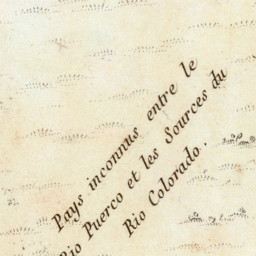 Pays inconnus entre le
Rio Puerco et les Sources du
Rio Colorado.